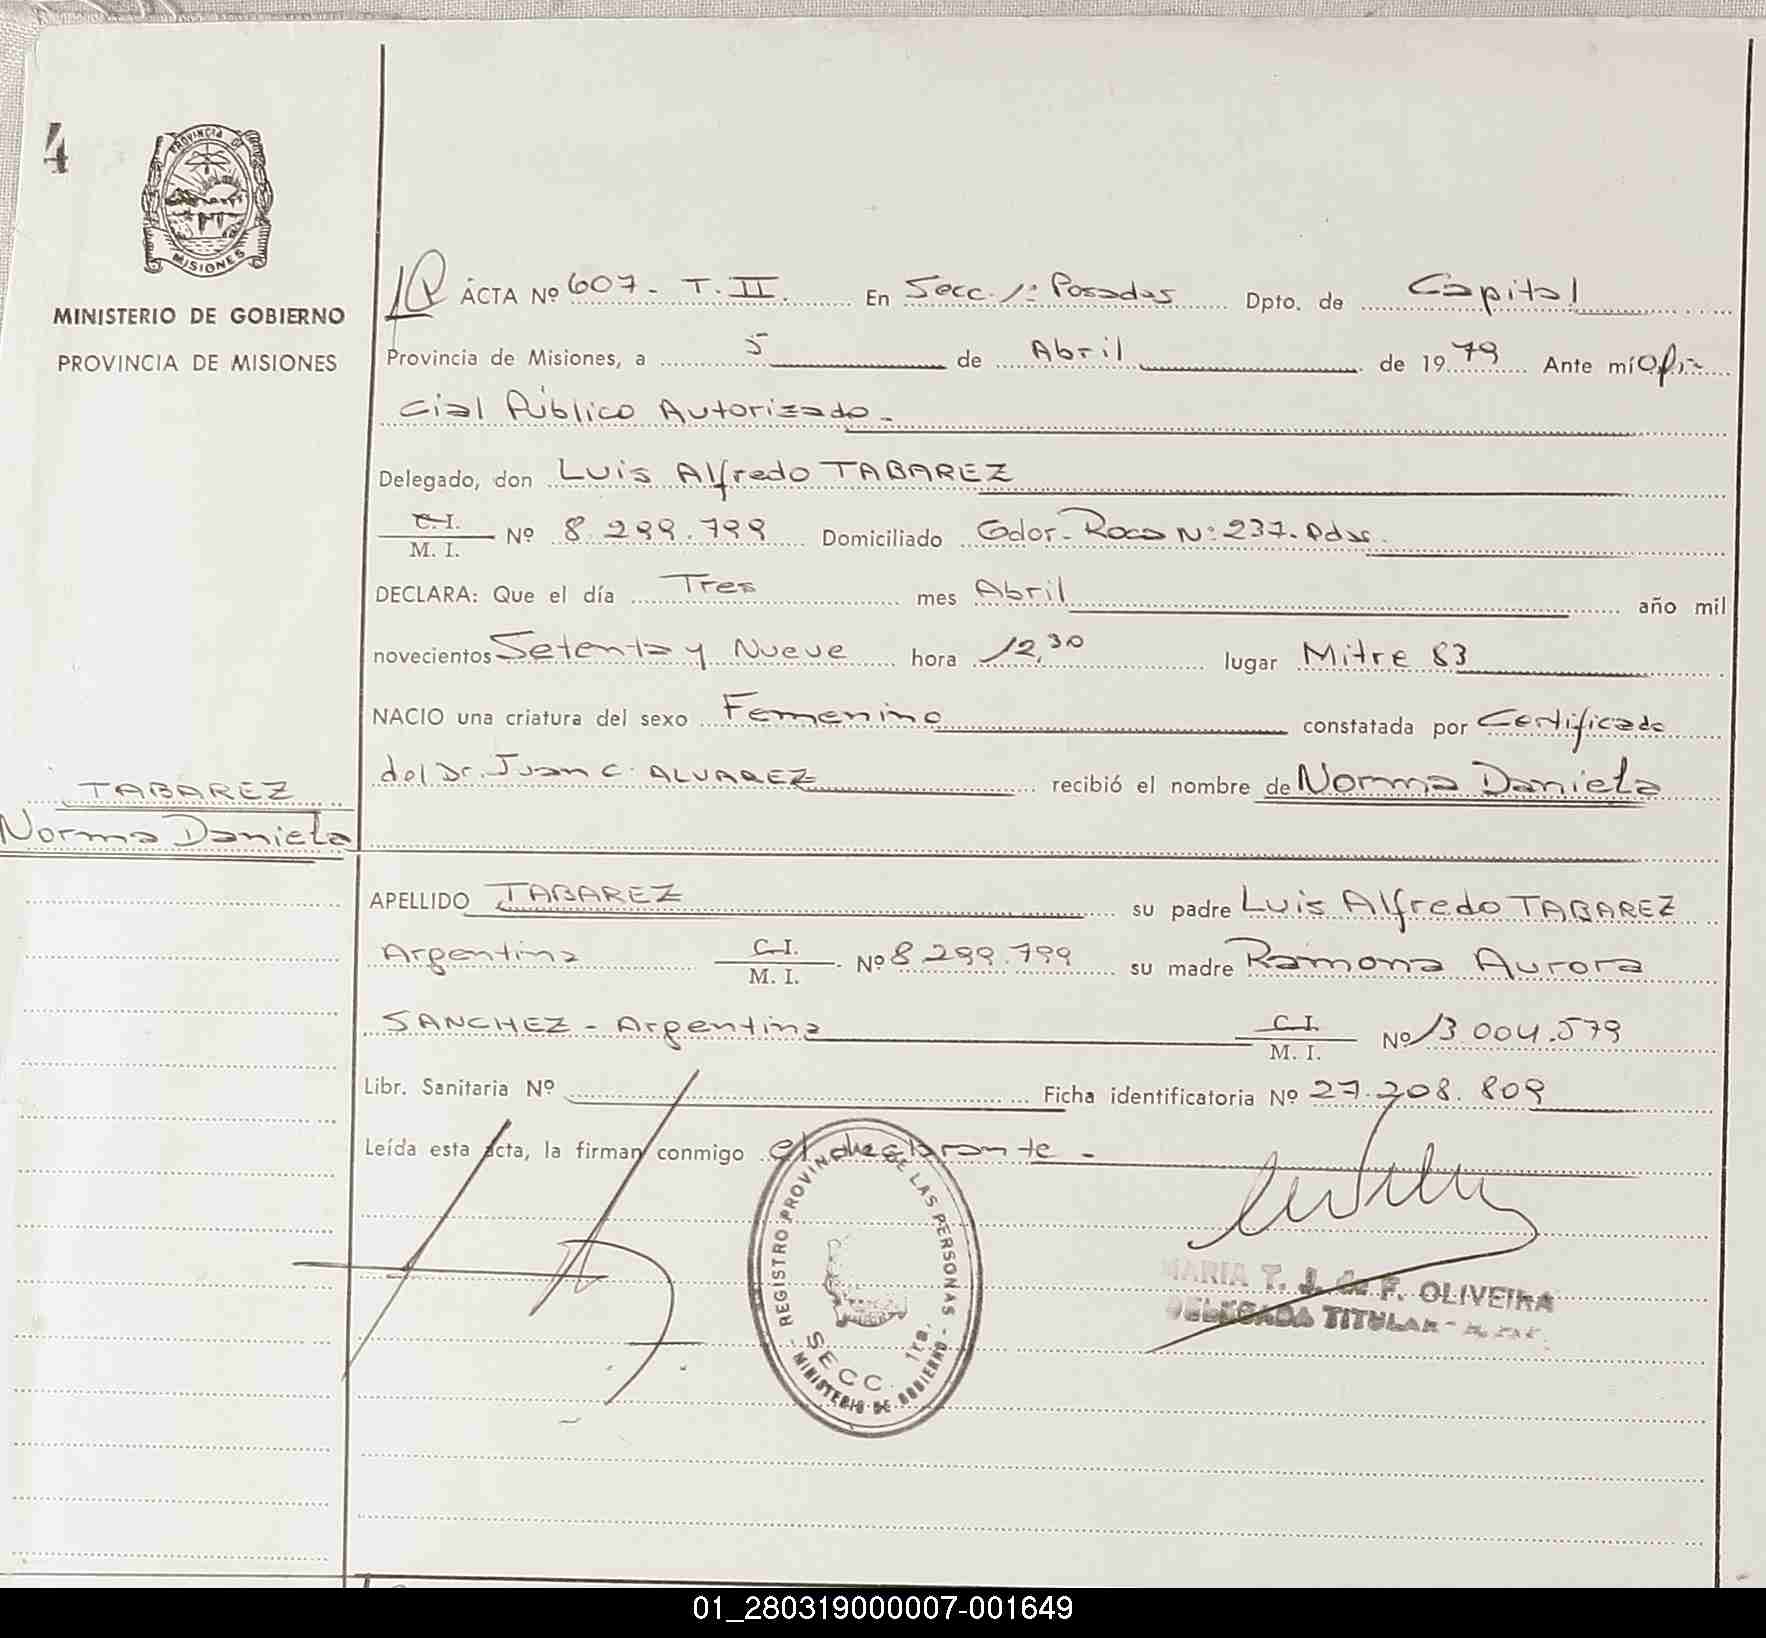 4
PROVINCIA DE
MISIONES
MINISTERIO DE GOBIERNO
PROVINCIA DE MISIONES
ACTA Nº 607 - T. II. En Secc. 1º Posadas Dpto. de Capital
Provincia de Misiones, a 5 de Abril de 1979 Ante mí Ofi-
cial Público Autorizado.-
Delegado, don Luis Alfredo TABAREZ
C. I.
M. I. Nº 8.299.799 Domiciliado Gdor. Roca Nº 237. Pdas.
DECLARA: Que el día Tres mes Abril año mil
novecientos Setenta y Nueve hora 12,30 lugar Mitre 83
NACIO una criatura del sexo Femenino constatada por Certificado
del Dr. Juan C. ALVAREZ recibió el nombre de Norma Daniela
TABAREZ
Norma Daniela
APELLIDO TABAREZ su padre Luis Alfredo TABAREZ
Argentina C. I.
M. I. Nº 8.299.799 su madre Ramona Aurora
SANCHEZ - Argentina C. I.
M. I. Nº 13.004.579
Libr. Sanitaria Nº Ficha identificatoria Nº 27.208.809
Leída esta acta, la firman conmigo el declarante -
REGISTRO PROVINCIAL DE LAS PERSONAS
SECC. 1ra.
MINISTERIO DE GOBIERNO
MARIA T. J. de F. OLIVEIRA
DELEGADA TITULAR
01_280319000007-001649